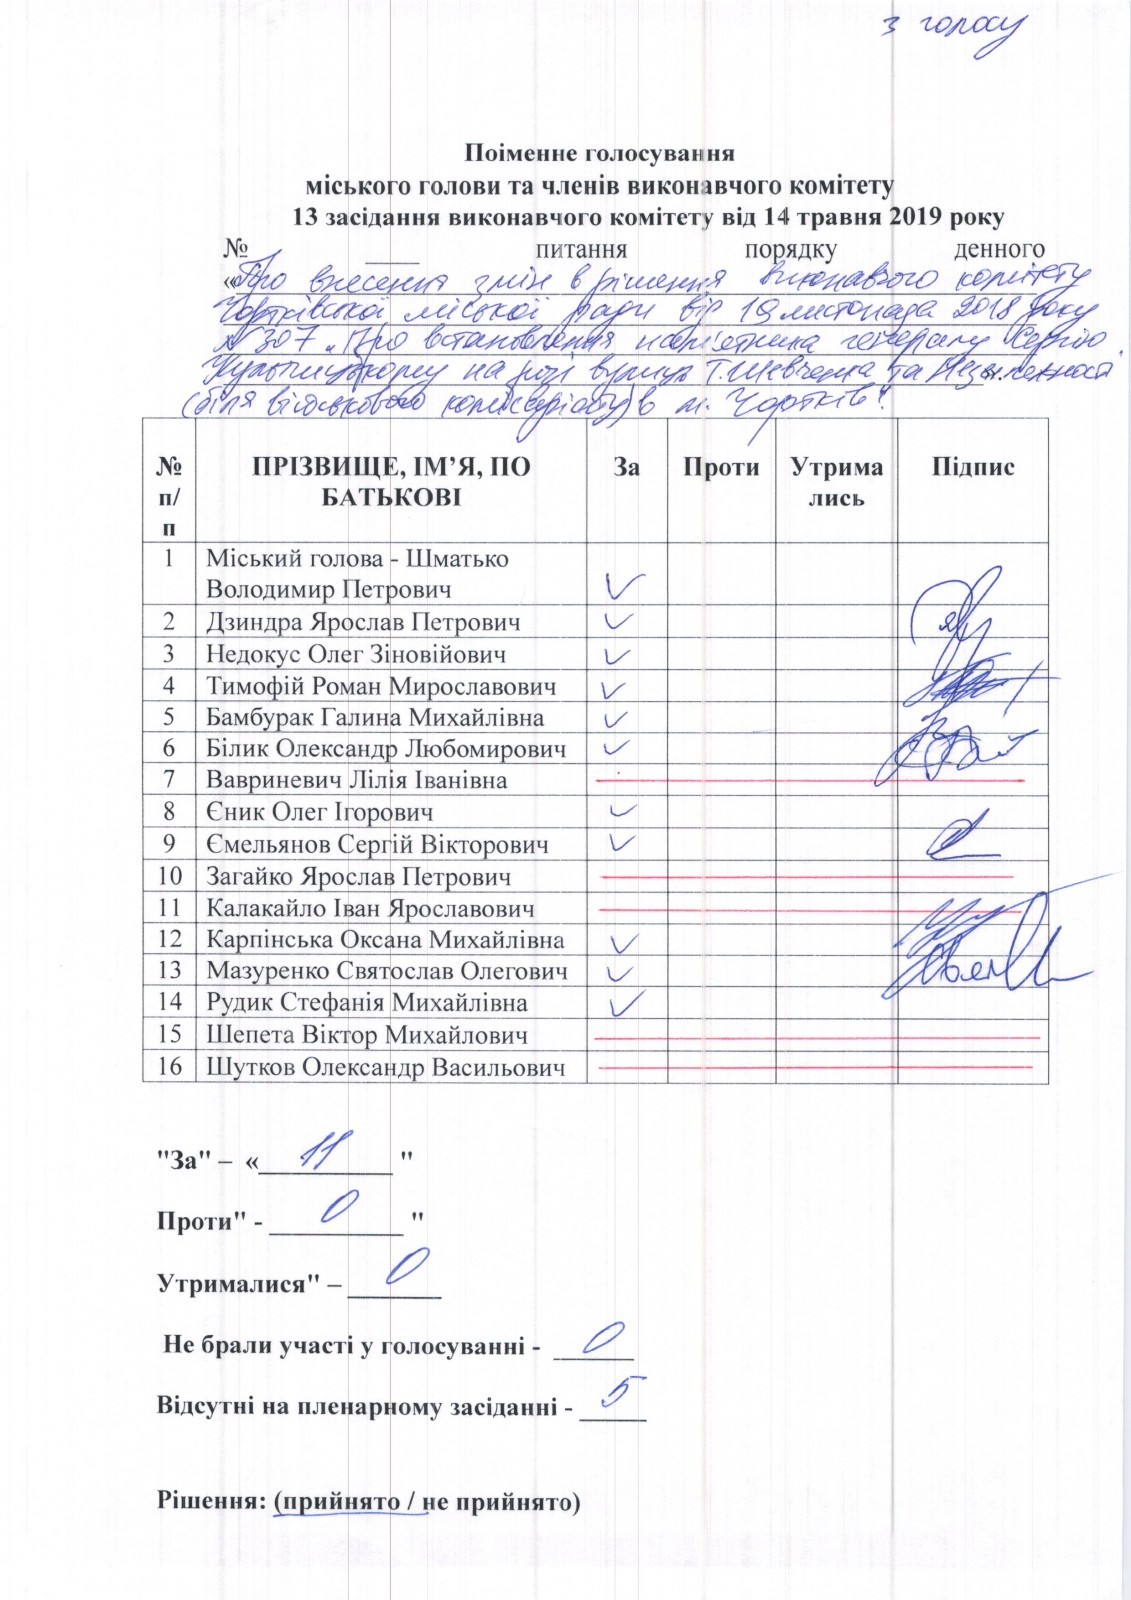 з голосу
Поіменне голосування
міського голови та членів виконавчого комітету
13 засідання виконавчого комітету від 14 травня 2019 року
№ ____ питання порядку денного
«Про внесення змін в рішення виконавчого комітету
Чортківської міської ради від 19 листопада 2018 року
№ 307 „Про встановлення пам'ятника генералу Сергію
Кульчицькому на розі вулиць Т.Шевченка та Незалежності
(біля військового комісаріату) в м. Чортків"
№ п/п ПРІЗВИЩЕ, ІМ’Я, ПО БАТЬКОВІ За Проти Утрима лись Підпис
1 Міський голова - Шматько
Володимир Петрович
2 Дзиндра Ярослав Петрович
3 Недокус Олег Зіновійович
4 Тимофій Роман Мирославович
5 Бамбурак Галина Михайлівна
6 Білик Олександр Любомирович
7 Вавриневич Лілія Іванівна
8 Єник Олег Ігорович
9 Ємельянов Сергій Вікторович
10 Загайко Ярослав Петрович
11 Калакайло Іван Ярославович
12 Карпінська Оксана Михайлівна
13 Мазуренко Святослав Олегович
14 Рудик Стефанія Михайлівна
15 Шепета Віктор Михайлович
16 Шутков Олександр Васильович
"За" – «11 "
Проти" - 0 "
Утрималися" – 0
Не брали участі у голосуванні - 0
Відсутні на пленарному засіданні - 5
Рішення: (прийнято / не прийнято)